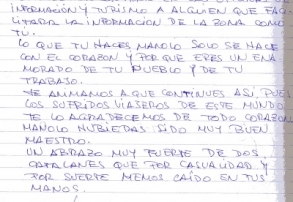 INFORMACIÓN Y TURISMO A ALGUIEN QUE FAC-
LITARA LA INFORMACIÓN DE LA ZONA COMO
TU.
LO QUE TU HACES MANOLO SOLO SE HACE
CON EL CORAZON Y POR QUE ERES UN ENA
MORADO DE TU PUEBLO Y DE TU
TRABAJO.
TE ANIMAMOS A QUE CONTINUES ASÍ, PUES
LOS SUFRIDOS VIAJEROS DE ESTE MUNDO
TE LO AGRADECEMOS DE TODO CORAZON
MANOLO HUBIERAS SIDO MUY BUEN
MAESTRO.
UN ABRAZO MUY FUERTE DE DOS
CATALANES QUE POR CASUALIDAD Y
POR SUERTE HEMOS CAÍDO EN TUS
MANOS.